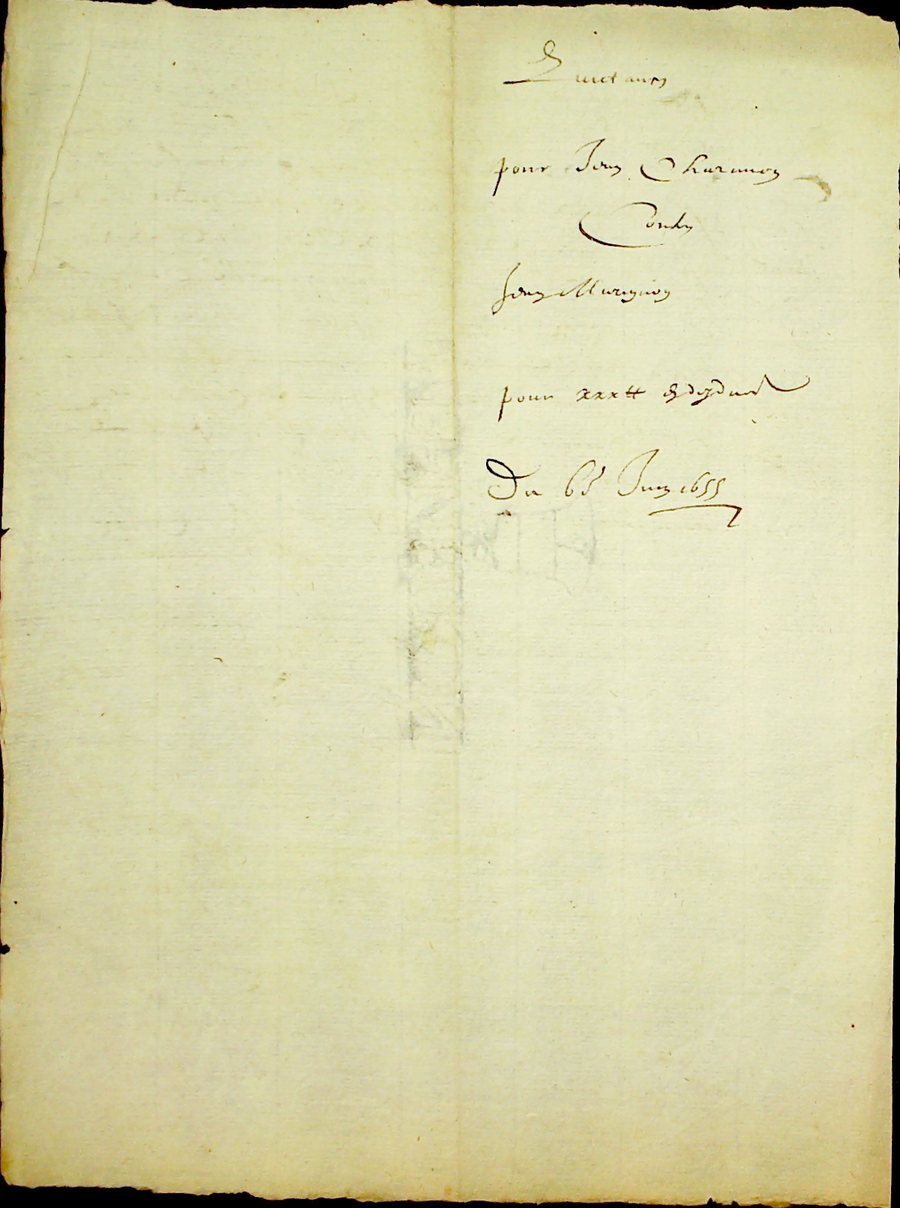 Quictance
pour Jean Charmoy
Contre
Jean Marignon
pour xxxtt
Du 6e Juin 1655